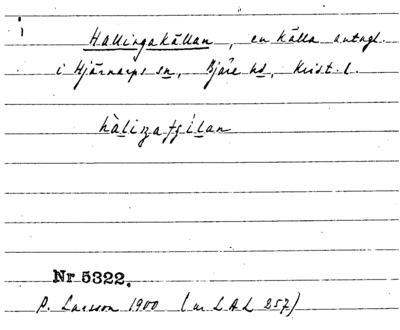 Hallingakällan, en källa antagl.
i Hjärnarps sn, Bjäre hd, Krist. l.
Nr 5322.
P. Larsson 1900 (ur LAL 257)